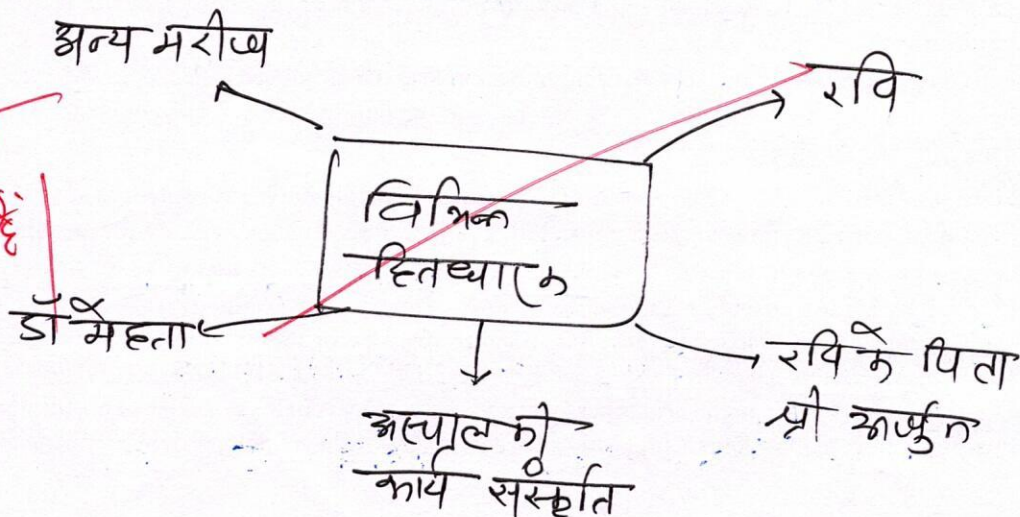 अन्य मरीज
रवि
विभिन्न
हितधारक
डॉ मेहता
रवि के पिता
श्री अर्जुन
अस्पताल की
कार्य संस्कृति